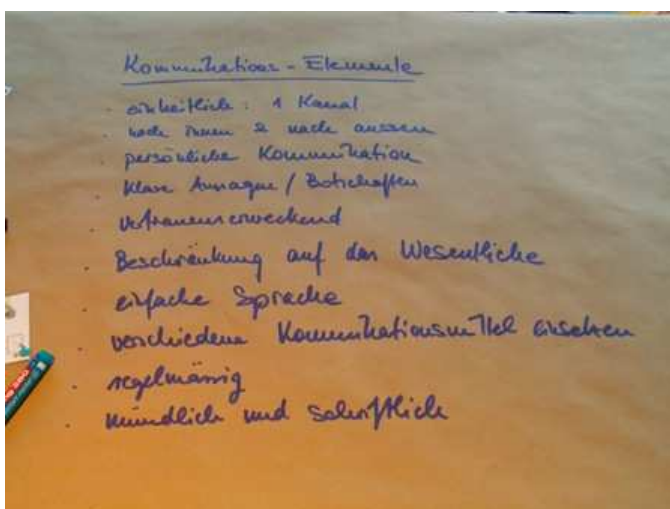 Kommunikations-Elemente
. einheitlich: 1 Kanal
. nach innen & nach aussen
. persönliche Kommunikation
. klare Aussagen / Botschaften
. vertrauenserweckend
. Beschränkung auf das Wesentliche
. einfache Sprache
. verschiedene Kommunikationsmittel einsetzen
. regelmässig
. mündlich und schriftlich